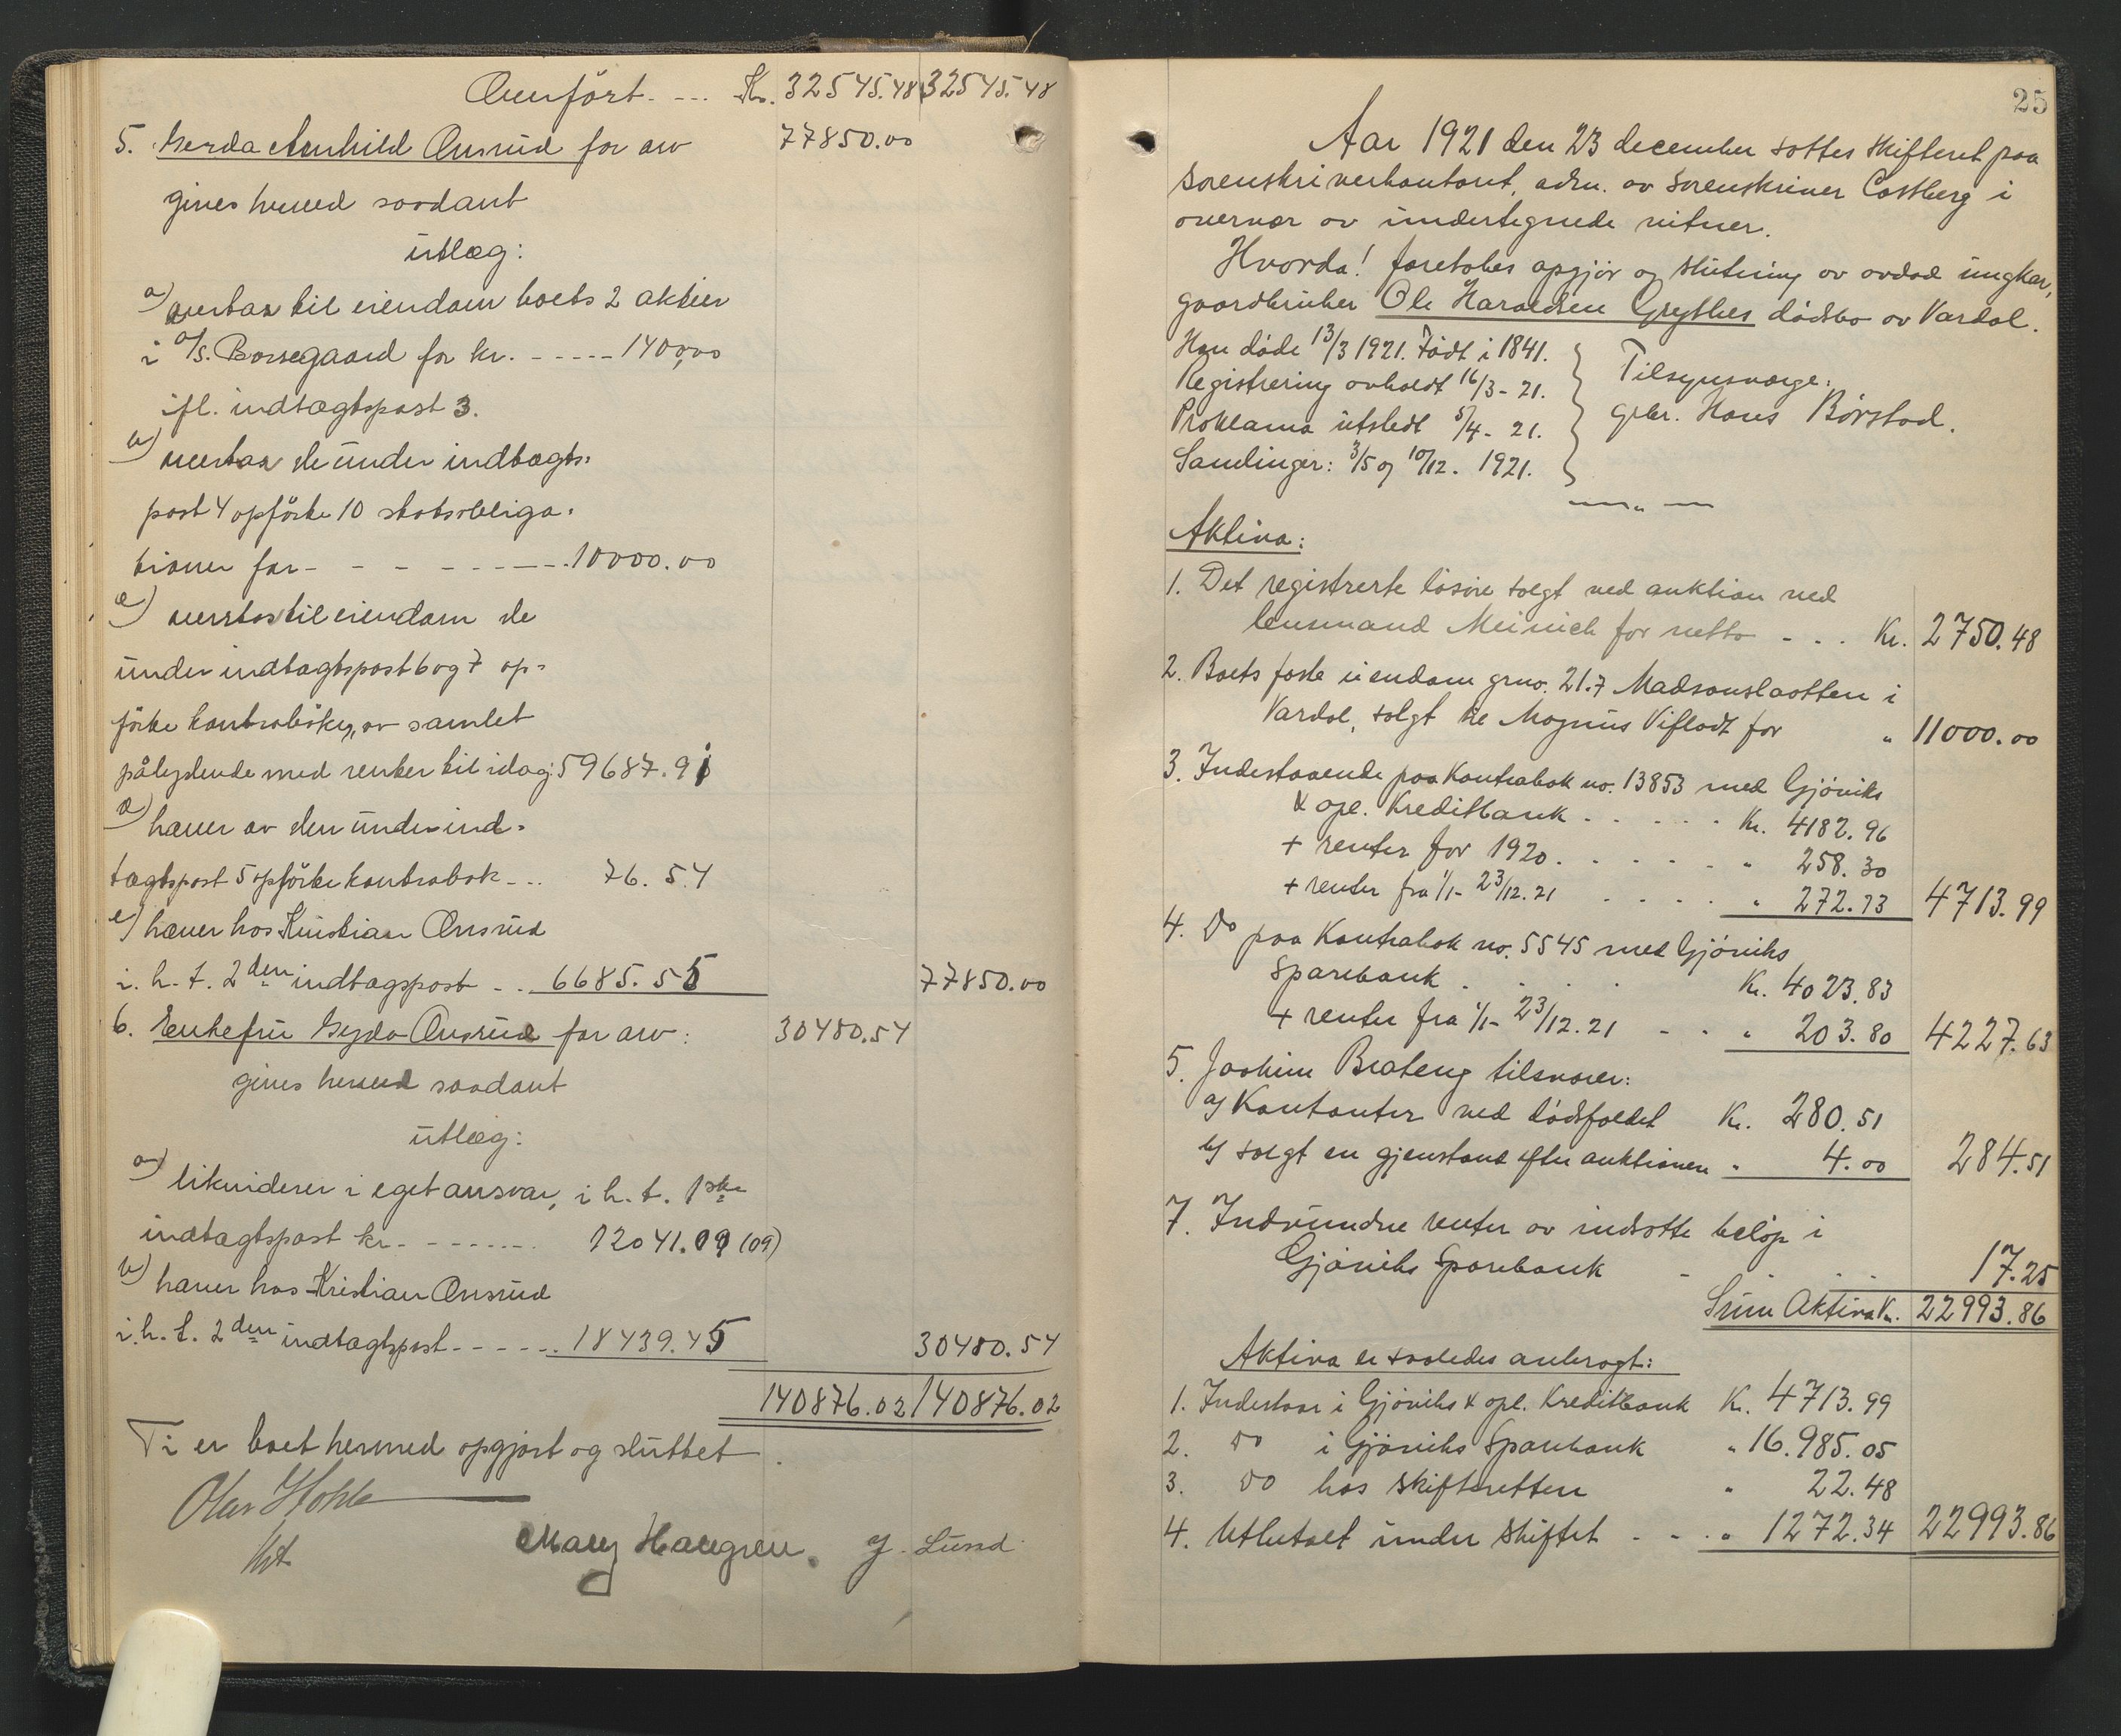 Overført. --- Kr. 32545.48 32545.48
5. Gerda Arnhild Onsrud for arv 77850.00
gives herved saadant
utlæg:
a) overtar til eiendom boets 2 aktier
i A/S. Borregaard for kr. ----- 1400,00
ifl. indtægtspost 3.
b) overtar de under indtægts=
post 4 opförte 10 statsobliga=
tioner for - - - ------ 10000.00
c) overtar til eiendom de
under indtægtspost 6 og 7 op=
förte kontraböker, av samlet
pålydende med renter til idag: 59687.91
d) hæver av den under ind=
tægtspost 5 opförte kontrabok --- 76.54
e) hæver hos Kristian Onsrud
i. h. t. 2den indtægtspost - . 6685.55 77850.00
6. Enkefru Gyda Onsrud for arv: 30480.54
gives herved saadant
utlæg:
a) likviderer i eget ansvar, i h. t. 1ste
indtægtspost kr. ------- 12041.09 (09)
b) hæver hos Kristian Onsrud
i. h. t. 2den indtægtspost ------ 18439.45 30480.54
140876.02 140876.02
Ti er boet hermed opgjort og sluttet.
Olav Hohle
Kst
Mary Haugren. J. Lund
25
Aar 1921 den 23 december sattes skifteret paa
sorenskriverkontoret, adm. av sorenskriver Castberg i
overvær av undertegnede vitner.
Hvorda! foretokes opgjör og slutning av avdød ungkar,
gaardbruker Ole Haraldsen Grythes dødsbo av Vardal.
Han døde 13/3 1921. Født i 1841.
Registrering avholdt 16/3 - 21.
Proklama utstedt 5/4 - 21.
Samlinger: 3/5 og 10/12. 1921.
Tilsynsværge:
gbr. Hans Börstad.
Aktiva:
1. Det registrerte lösöre solgt ved auktion ved
lensmand Meinich for netto - . . Kr. 2750.48
2. Boets faste eiendom grno. 21.7 Madsonslaatten i
Vardal, solgt til Magnus Viflodt for " 11000.00
3. Indestaaende paa Kontrabok no. 13853 med Gjöviks
& opl. Kreditbank - . . . . Kr. 4182.96
+ renter for 1920. . . . . " 258.30
+ renter fra 1/1 - 23/12.21 . . . . " 272.73 4713.99
4. Do paa Kontrabok no. 5545 med Gjöviks
Sparebank . . . . Kr. 4023.83
+ renter fra 1/1 - 23/12.21 - . . " 203.80 4227.63
5. Joakim Brateng tilsvarer:
a) Kontanter ved dödsfaldet Kr. 280.51
b) solgt en gjenstand efter auktionen " 4.00 284.51
7. Indvundne renter av indsatte beløp i
Gjöviks Sparebank - . . . 17.25
Sum Aktiva Kr. 22993.86
Aktiva er saaledes anbragt:
1. Indestaar i Gjöviks & opl. Kreditbank Kr. 4713.99
2. Do i Gjöviks Sparebank " 16.985.05
3. Do hos skifteretten " 22.48
4. Utbetalt under Skiftet - - . " 1272.34 22993.86